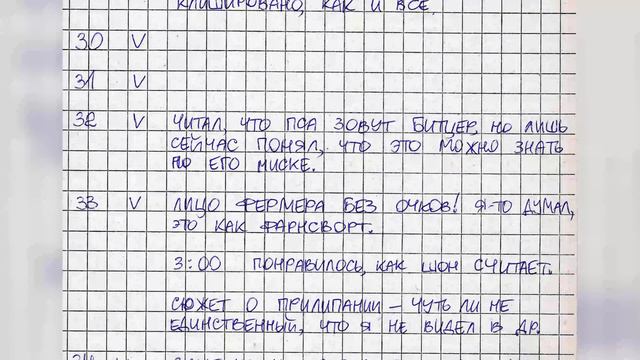 КЛИШИРОВАНО, КАК И ВСЕ.
30 V
31 V
32 V ЧИТАЛ, ЧТО ПСА ЗОВУТ БИТЦЕР, НО ЛИШЬ
СЕЙЧАС ПОНЯЛ, ЧТО ЭТО МОЖНО ЗНАТЬ
ПО ЕГО МИСКЕ.
33 V ЛИЦО ФЕРМЕРА БЕЗ ОЧКОВ! Я-ТО ДУМАЛ,
ЭТО КАК ФАРНСВОРТ.
3:00 ПОНРАВИЛОСЬ, КАК ШОН СЧИТАЕТ.
СЮЖЕТ О ПРИЛИПАНИИ – ЧУТЬ ЛИ НЕ
ЕДИНСТВЕННЫЙ, ЧТО Я НЕ ВИДЕЛ В ДР.